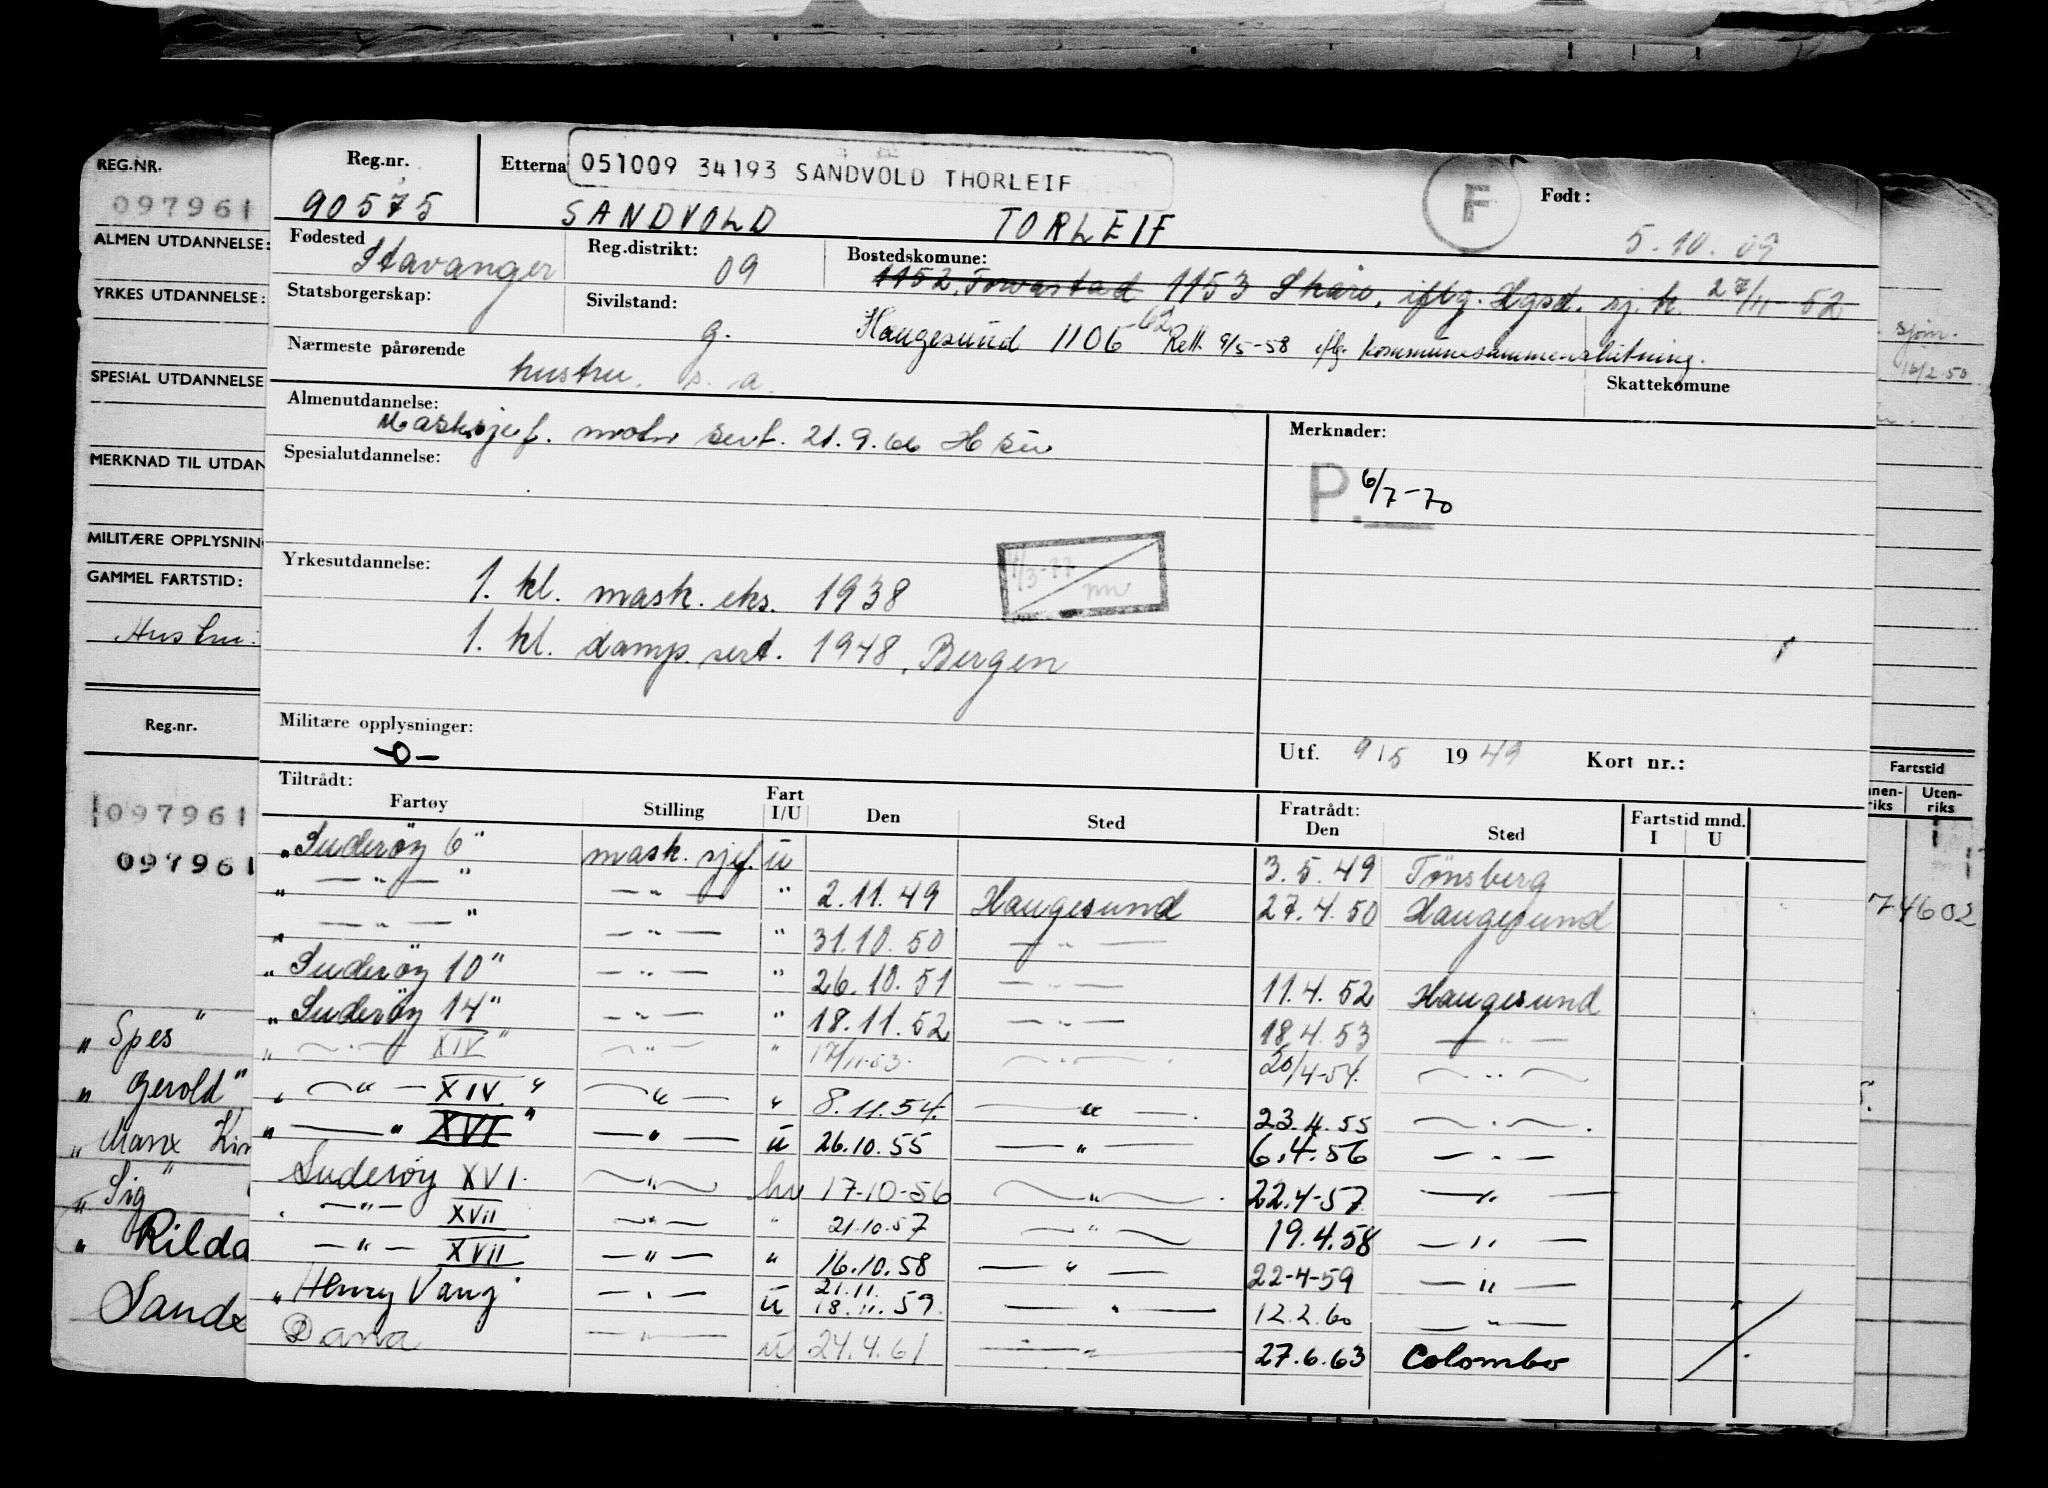 REG.NR.
097961
ALMEN UTDANNELSE:
YRKES UTDANNELSE:
SPESIAL UTDANNELSE
MERKNAD TIL UTDAN
MILITÆRE OPPLYSNIN
GAMMEL FARTSTID:
Hustru:
Reg.nr.
097961
097961
„ Spes "
„ Gerold "
„ Manx Kin
„ Sig "
„ Rilda
Reg.nr. Etterna 051009 34193 SANDVOLD THORLEIF F Født:
90575 SANDVOLD TORLEIF 5.10.09
Fødested Stavanger Reg.distrikt: 09 Bostedskomune: 1152, Torvastad 1153 Skåre, iflg. Hgsd. sj.k. 27/11-52
Statsborgerskap: Sivilstand: g. Haugesund 1106 Rett 9/5-58 iflg. kommunesammenslutning.
Nærmeste pårørende hustru s. a. Skattekomune
Almenutdannelse: Masksjef. motor sert. 21.9.66 Merknader:
Spesialutdannelse: P. 6/7-70
Yrkesutdannelse: 1. kl. mask. eks. 1938
1. kl. damp. sert. 1948, Bergen
Militære opplysninger: -0-
Utf. 9/5 1949 Kort nr.:
Tiltrådt: Fratrådt: Fartstid mnd.
Fartøy Stilling Fart I/U Den Sted Den Sted I U
„Suderøy 6" mask. sjef. u 3.5.49 Tønsberg
„ — " — " — " — " 2.11.49 Haugesund 27.4.50 Haugesund
„ — " — " — " — " 31.10.50 — " —
„Suderøy 10" — " — " 26.10.51 — " — 11.4.52 Haugesund
„Suderøy 14" — " — " 18.11.52 — " — 18.4.53 — " —
„ — " — XIV " — " — " 17/11-53. — " — 20/4-54. — " —
„ — " — XIV " — " — " 8.11.54. — " — 23.4.55 — " —
„ — " XVI " — " — u 26.10.55 — " — 6.4.56 — " —
Suderøy XVI. — " — hv 17-10-56 — " — 22.4-57 — " —
„ — " — XVII — " — " 21.10.57 — " — 19.4.58 — " —
— " — XVII — " — " 16.10.58 — " — 22-4-59 — " —
„Henry Vang" — " — u 21.11. 18.11.59. — " — 12.2.60 — " —
Dana — " — u 24.4.61 — " — 27.6.63 Colombo
sjøm.
16/2.50
Fartstid
nnen-riks Uten-riks
74602